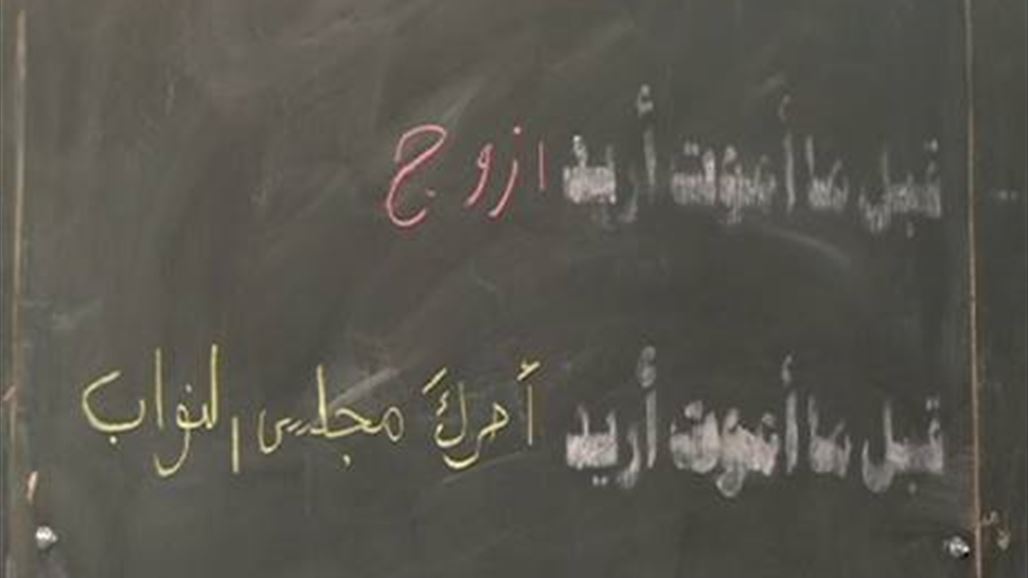 قبل ما أموت أريد ازوج
قبل ما أموت أريد أحرگ مجلس النواب